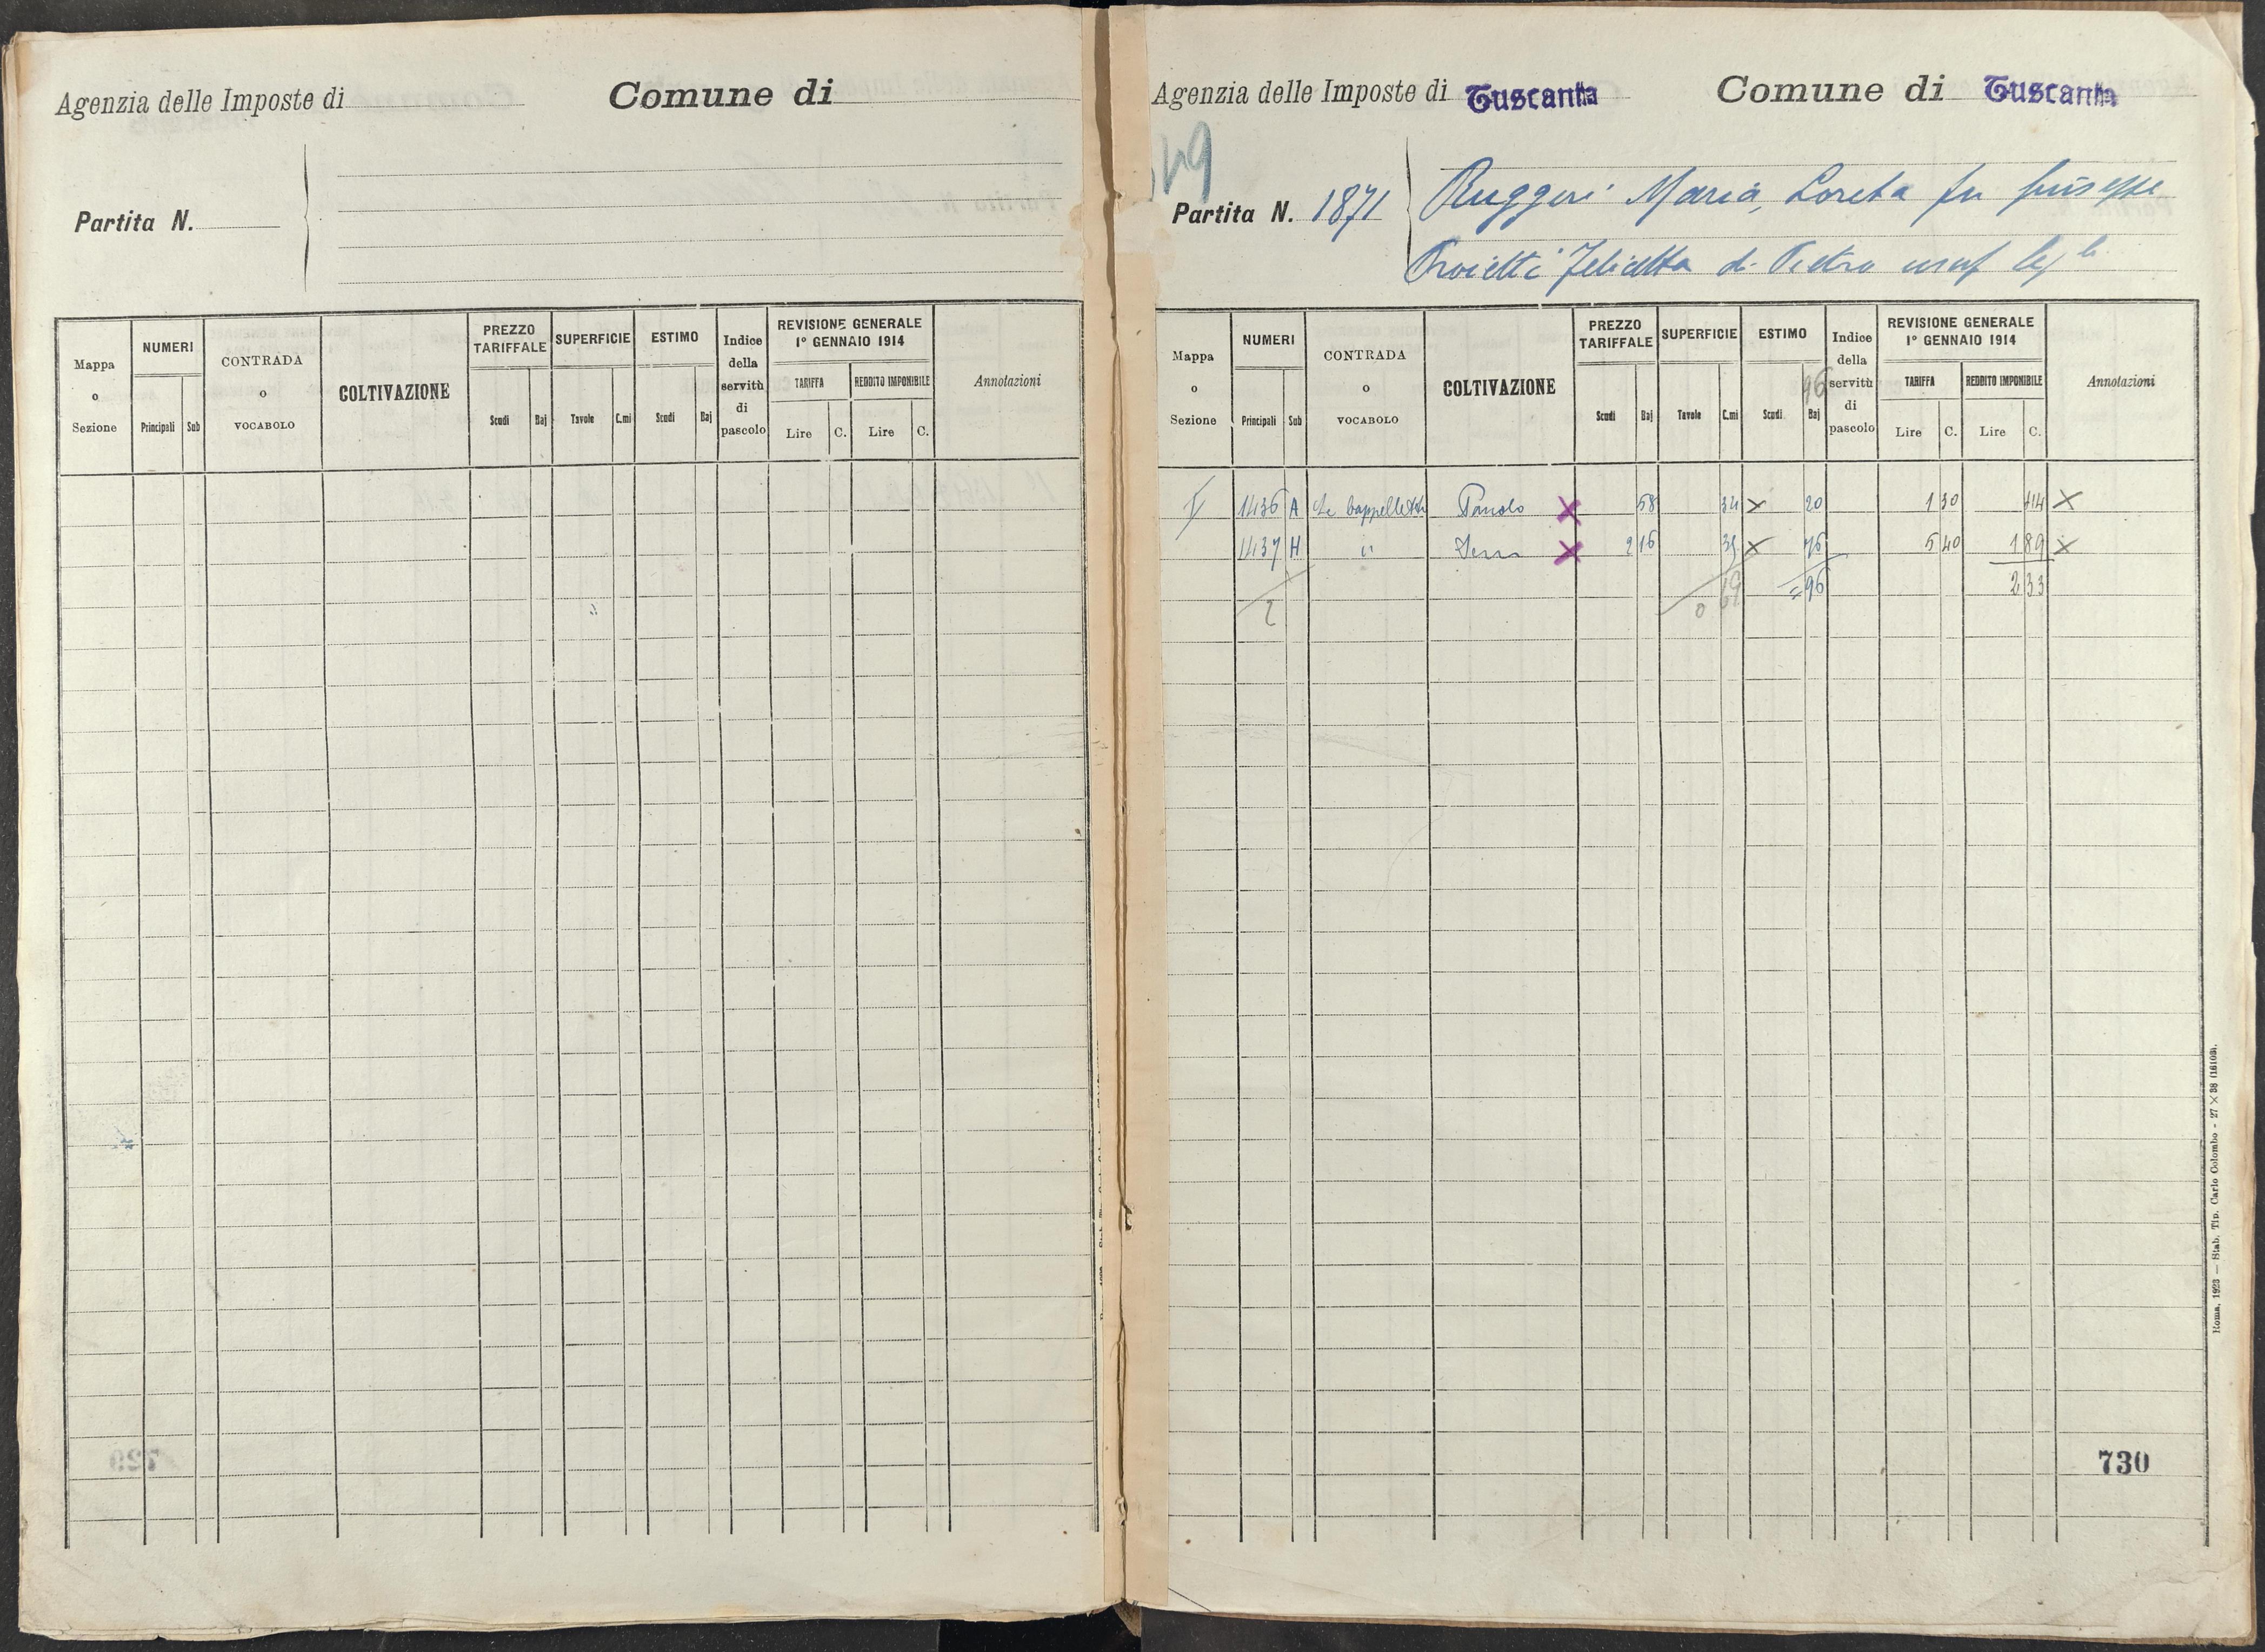 Agenzia delle Imposte di Comune di
Partita N.
Mappa o Sezione NUMERI Principali Sub CONTRADA o VOCABOLO COLTIVAZIONE PREZZO TARIFFALE Scudi Baj SUPERFICIE Tavole C.mi ESTIMO Scudi Baj Indice della servitù di pascolo REVISIONE GENERALE 1° GENNAIO 1914 TARIFFA Lire C. REDDITO IMPONIBILE Lire C. Annotazioni
729
Agenzia delle Imposte di Tuscania Comune di Tuscania
Partita N. 1871 Ruggeri Maria, Loreta fu Giuseppe
Proietti Felicetta di Pietro usuf
Mappa o Sezione NUMERI Principali Sub CONTRADA o VOCABOLO COLTIVAZIONE PREZZO TARIFFALE Scudi Baj SUPERFICIE Tavole C.mi ESTIMO Scudi Baj Indice della servitù di pascolo REVISIONE GENERALE 1° GENNAIO 1914 TARIFFA Lire C. REDDITO IMPONIBILE Lire C. Annotazioni
96
1436 A Le Cappellette X 58 34 X 20 1 30 44 X
1437 H " X 2 16 35 X 76 5 40 1 89 X
2 0 69 = 96 2 33
730
Roma, 1923 — Stab. Tip. Carlo Colombo - 27 × 38 (16103).